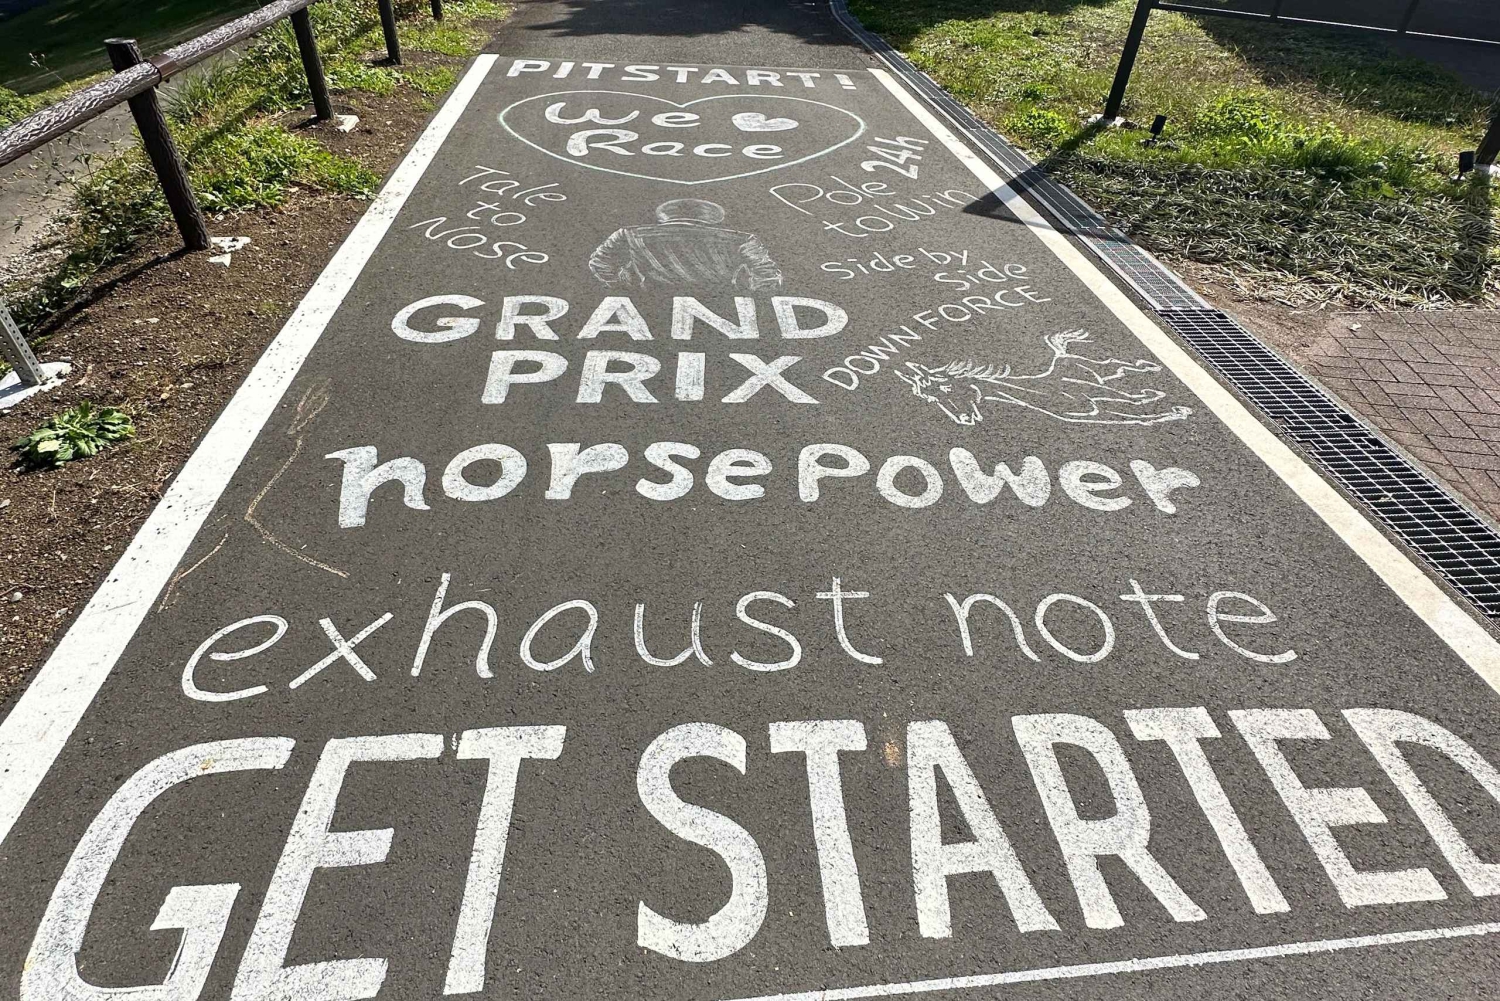 PIT START!
We
Race
24h
Pole
to Win
Tale
to
Nose
Side by
Side
DOWN FORCE
GRAND
PRIX
horse power
exhaust note
GET STARTED